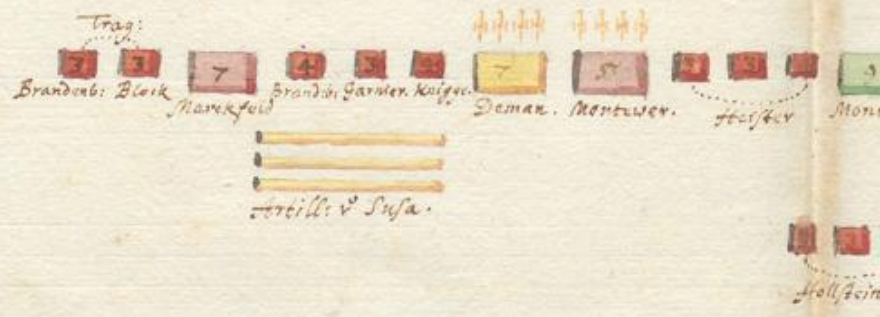 Trag:
3 3 7 4 3 7 5 3
Brandenb: Block Marckfeld Brandeb: Garnier. Knigge. Deman. Montever. Heister Mon
Artill: v Susa.
Hollstein